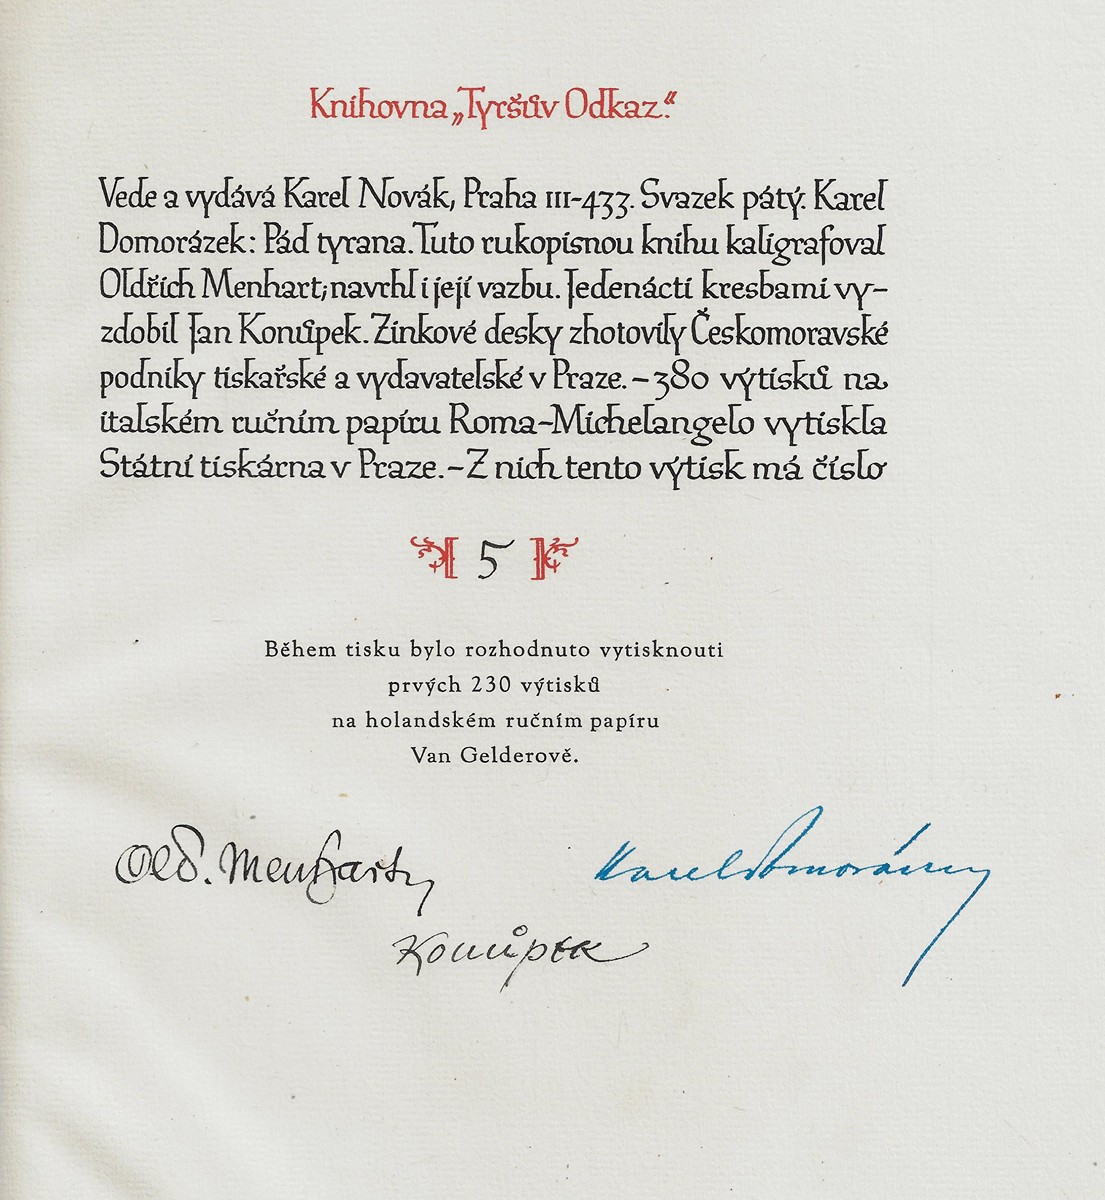 Knihovna „Tyršův Odkaz.“
Vede a vydává Karel Novák, Praha III-433. Svazek pátý. Karel
Domorázek: Pád tyrana. Tuto rukopisnou knihu kaligrafoval
Oldřich Menhart; navrhl i její vazbu. Jedenácti kresbami vy-
zdobil Jan Konůpek. Zinkové desky zhotovily Českomoravské
podniky tiskařské a vydavatelské v Praze. – 380 výtisků na
italském ručním papíru Roma-Michelangelo vytiskla
Státní tiskárna v Praze. – Z nich tento výtisk má číslo
5
Během tisku bylo rozhodnuto vytisknouti
prvých 230 výtisků
na holandském ručním papíru
Van Gelderově.
Old. Menhart
Karel Domorázek
Konůpek